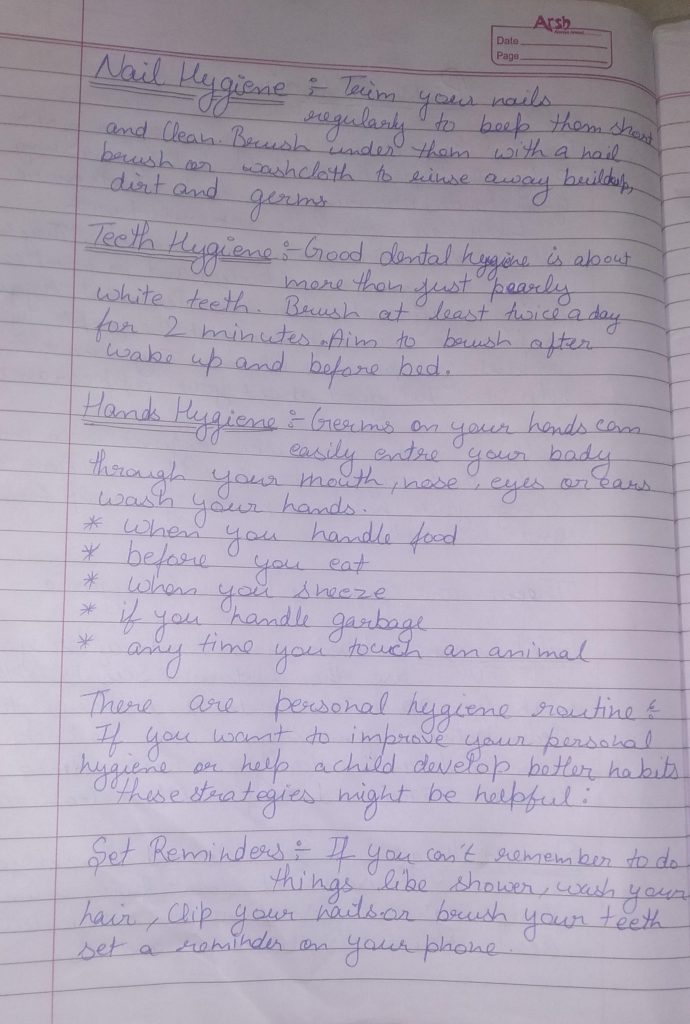 Arsh
Date
Page
Nail Hygiene :- Trim your nails
regularly to keep them short
and Clean. Brush under them with a nail
brush or washcloth to rinse away buildup,
dirt and germs
Teeth Hygiene :- Good dental hygiene is about
more than just pearly
white teeth. Brush at least twice a day
for 2 minutes. Aim to brush after
wake up and before bed.
Hands Hygiene :- Germs on your hands can
easily entre your bady
through your mouth, nose, eyes or ears
wash your hands.
* when you handle food
* before you eat
* when you sneeze
* if you handle garbage
* any time you touch an animal
There are personal hygiene routine :-
If you want to improve your personal
hygiene or help a child develop better habits
these strategies might be helpful :
Set Reminders :- If you can't remember to do
things like shower, wash your
hair, Clip your nails or brush your teeth
set a reminder on your phone.